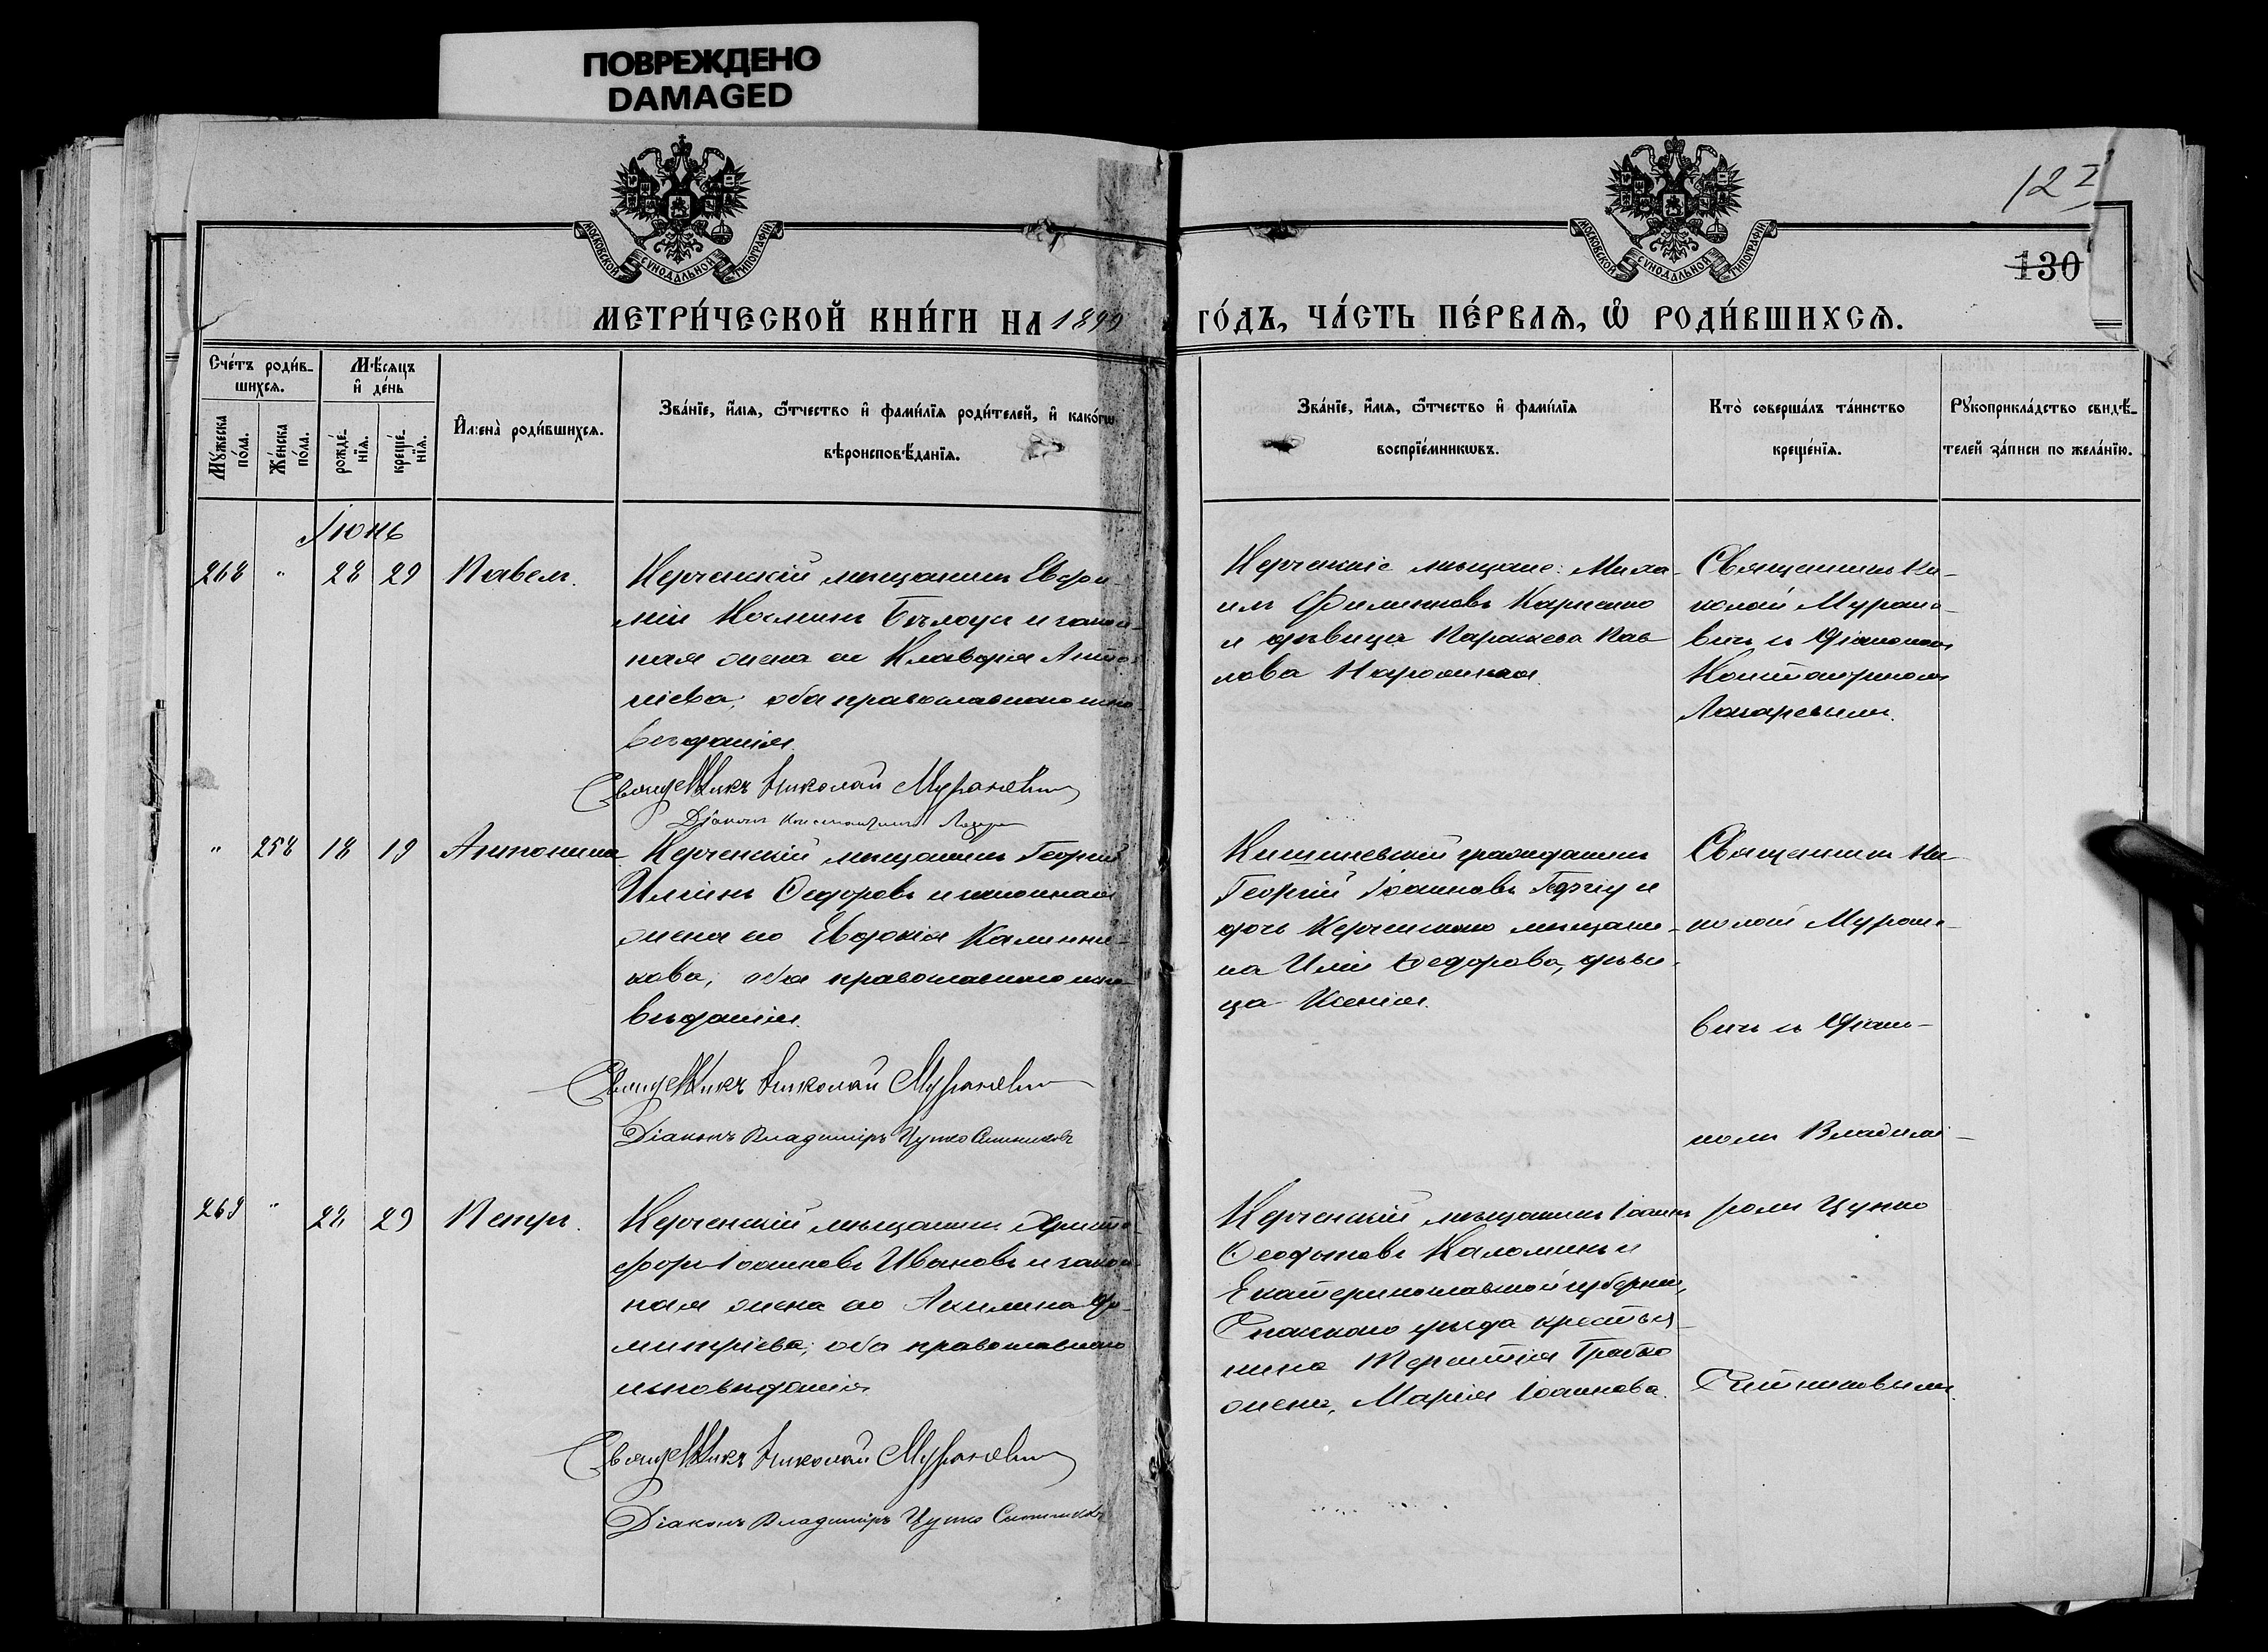 ПОВРЕЖДЕНО
DAMAGED
МОСКОВСКОЙ СѴНОДАЛЬНОЙ ТИПОГРАФІИ
МОСКОВСКОЙ СѴНОДАЛЬНОЙ ТИПОГРАФІИ
130
МЕТРИ́ЧЕСКОЙ КНИ́ГИ НА 1899 ГО́ДЪ, ЧА́СТЬ ПЕ́РВАѦ, Ѡ҆ РОДИ́ВШИХСѦ.
Сче́тъ роди́вшихсѧ.
Мѣ́сѧцъ и҆ де́нь
Мꙋ́жеска по́ла.
Же́нска по́ла.
рожде́нїѧ.
креще́нїѧ.
И҆мена̀ роди́вшихсѧ.
Зва́нїе, и҆́мѧ, ѻ҆́тчество и҆ фами́лїѧ роди́телей, и҆ како́гѡ
вѣроисповѣ́данїѧ.
Зва́нїе, и҆́мѧ, ѻ҆́тчество и҆ фами́лїѧ
воспрїе́мникѡвъ.
Кто̀ соверша́лъ та́инство
креще́нїѧ.
Рꙋкоприкла́дство свидѣ́-
телей за́писи по жела́нїю.
Іюнь
268 " 28 29 Павелъ.
Керченскій мѣщанинъ Евфи-
мій Косминъ Бѣлоус и закон-
ная жена его Клавдія Анто-
ніева; оба православнаго испо-
вѣданія.
Священникъ Николай Мураневич
Діаконъ Константинъ Лазар
Керченскіе мѣщане: Миха-
илъ Филипповъ Карпенко
и дѣвица Параскева Пав-
лова
Священникъ Ни-
колай Муране-
вич с діакономъ
Константиномъ
Лазаревымъ.
" 258 18 19 Антонина
Керченскій мѣщанинъ Георгій
Иліинъ Ѳедоровъ и законная
жена его Евдокія Калинни-
кова; оба православнаго испо-
вѣданія.
Священникъ Николай Мураневич
Діаконъ Владиміръ Цупко Ситниковъ
Кишиневскій гражданинъ
Георгій Іоанновъ и
дочь Керченскаго мѣщани-
на Иліи Ѳедорова, дѣви-
ца Ксенія.
Священникъ Ни-
колай Муране-
вич с діако-
номъ Владимі-
ромъ Цупко
Ситниковымъ.
269 " 28 29 Петръ.
Керченскій мѣщанинъ Христо-
форъ Іоанновъ Ивановъ и закон-
ная жена его Акилина Ди-
митріева; оба православнаго
исповѣданія.
Священникъ Николай Мураневич
Діаконъ Владиміръ Цупко Ситниковъ
Керченскій мѣщанинъ Іоаннъ
Ѳеодотовъ и
Екатеринославской губерніи,
уѣзда крестья-
нина Терентія
жена, Марія Іоаннова.